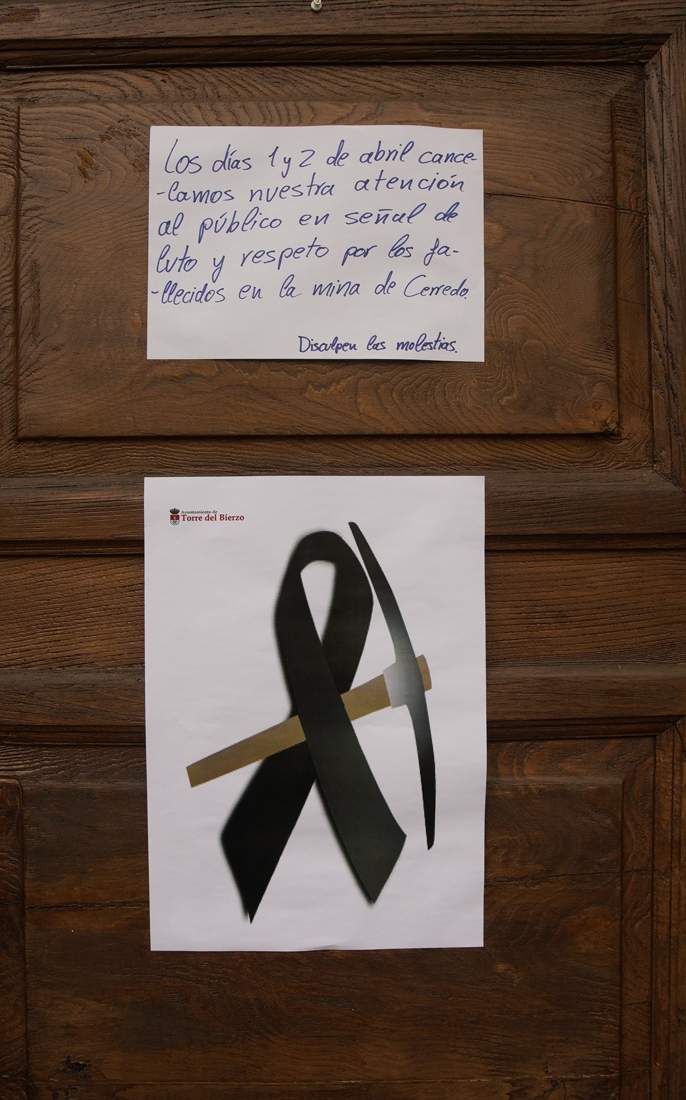 Los días 1 y 2 de abril cance-
-lamos nuestra atención
al público en señal de
luto y respeto por los fa-
-llecidos en la mina de Cerredo.
Disculpen las molestias.
Ayuntamiento de
Torre del Bierzo